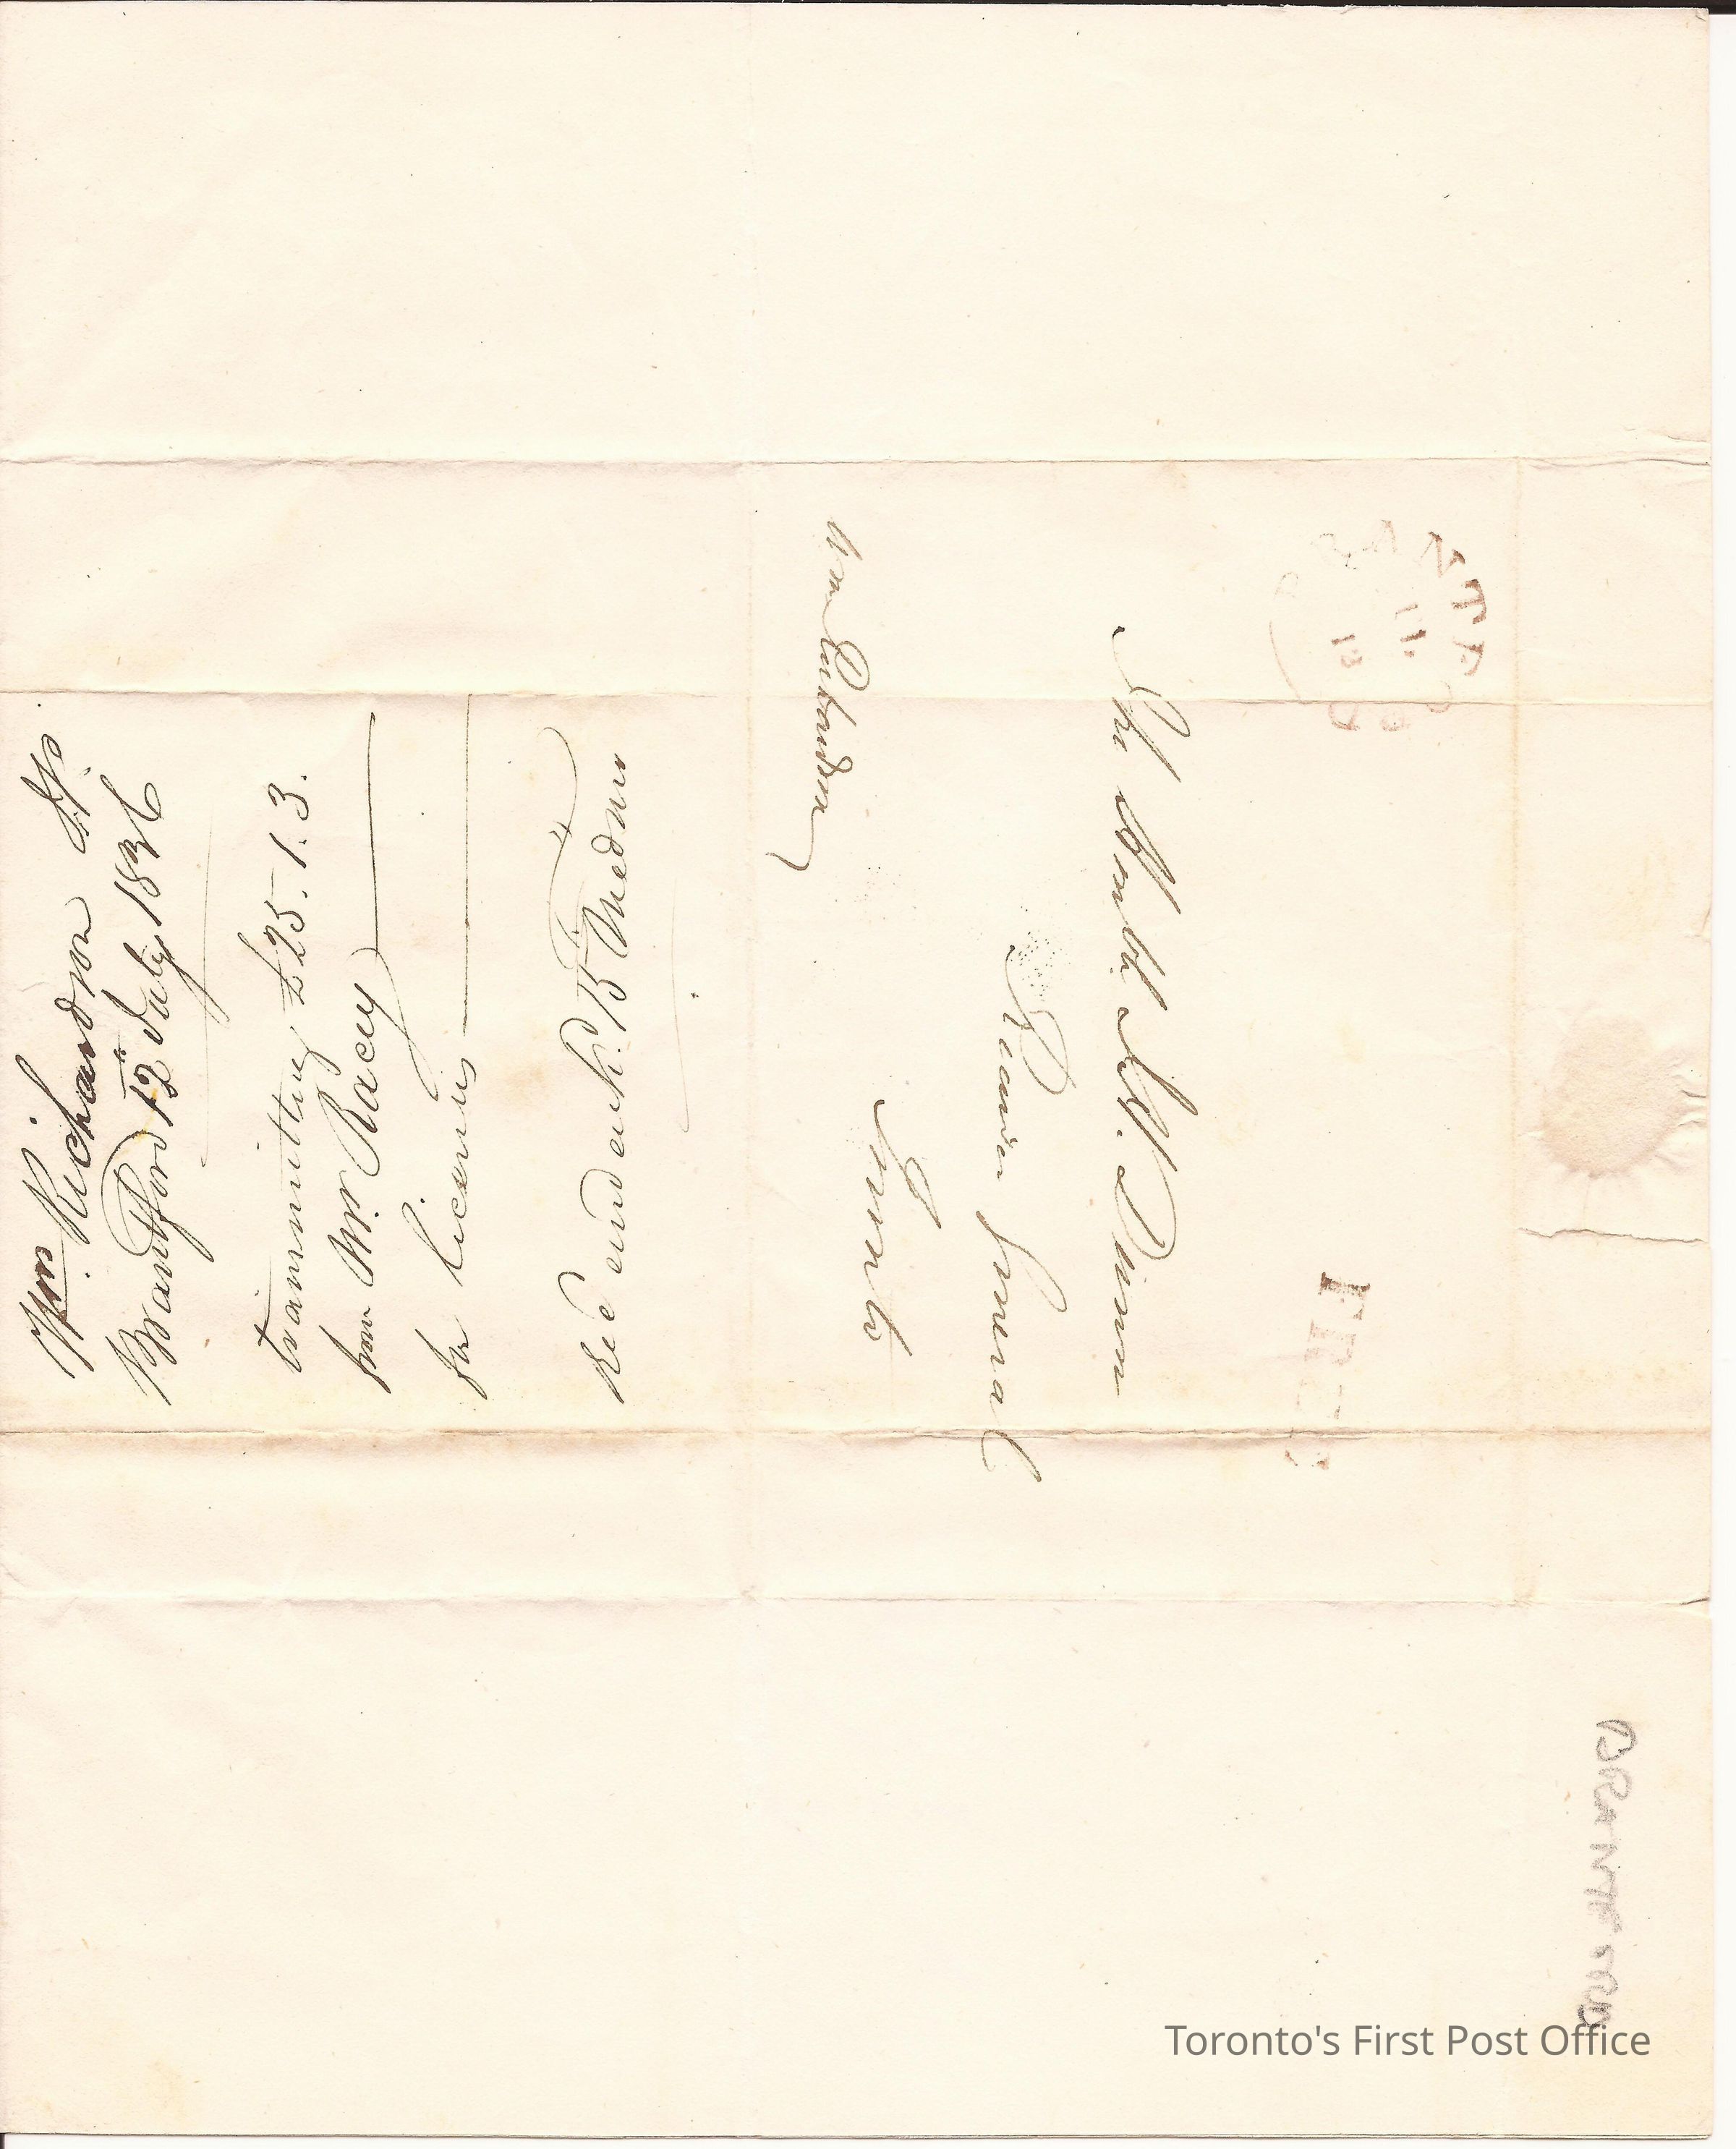 Wm. Richardson
Brantford 12th July 1836
transmitting £25. 1. 3.
from Mr. Racey
for licenses
Rec and ack.d 15th
Wm Richardson
The Honble J. H. Dunn
Receiver General
Toronto
FREE
BRANTFORD
Toronto's First Post Office